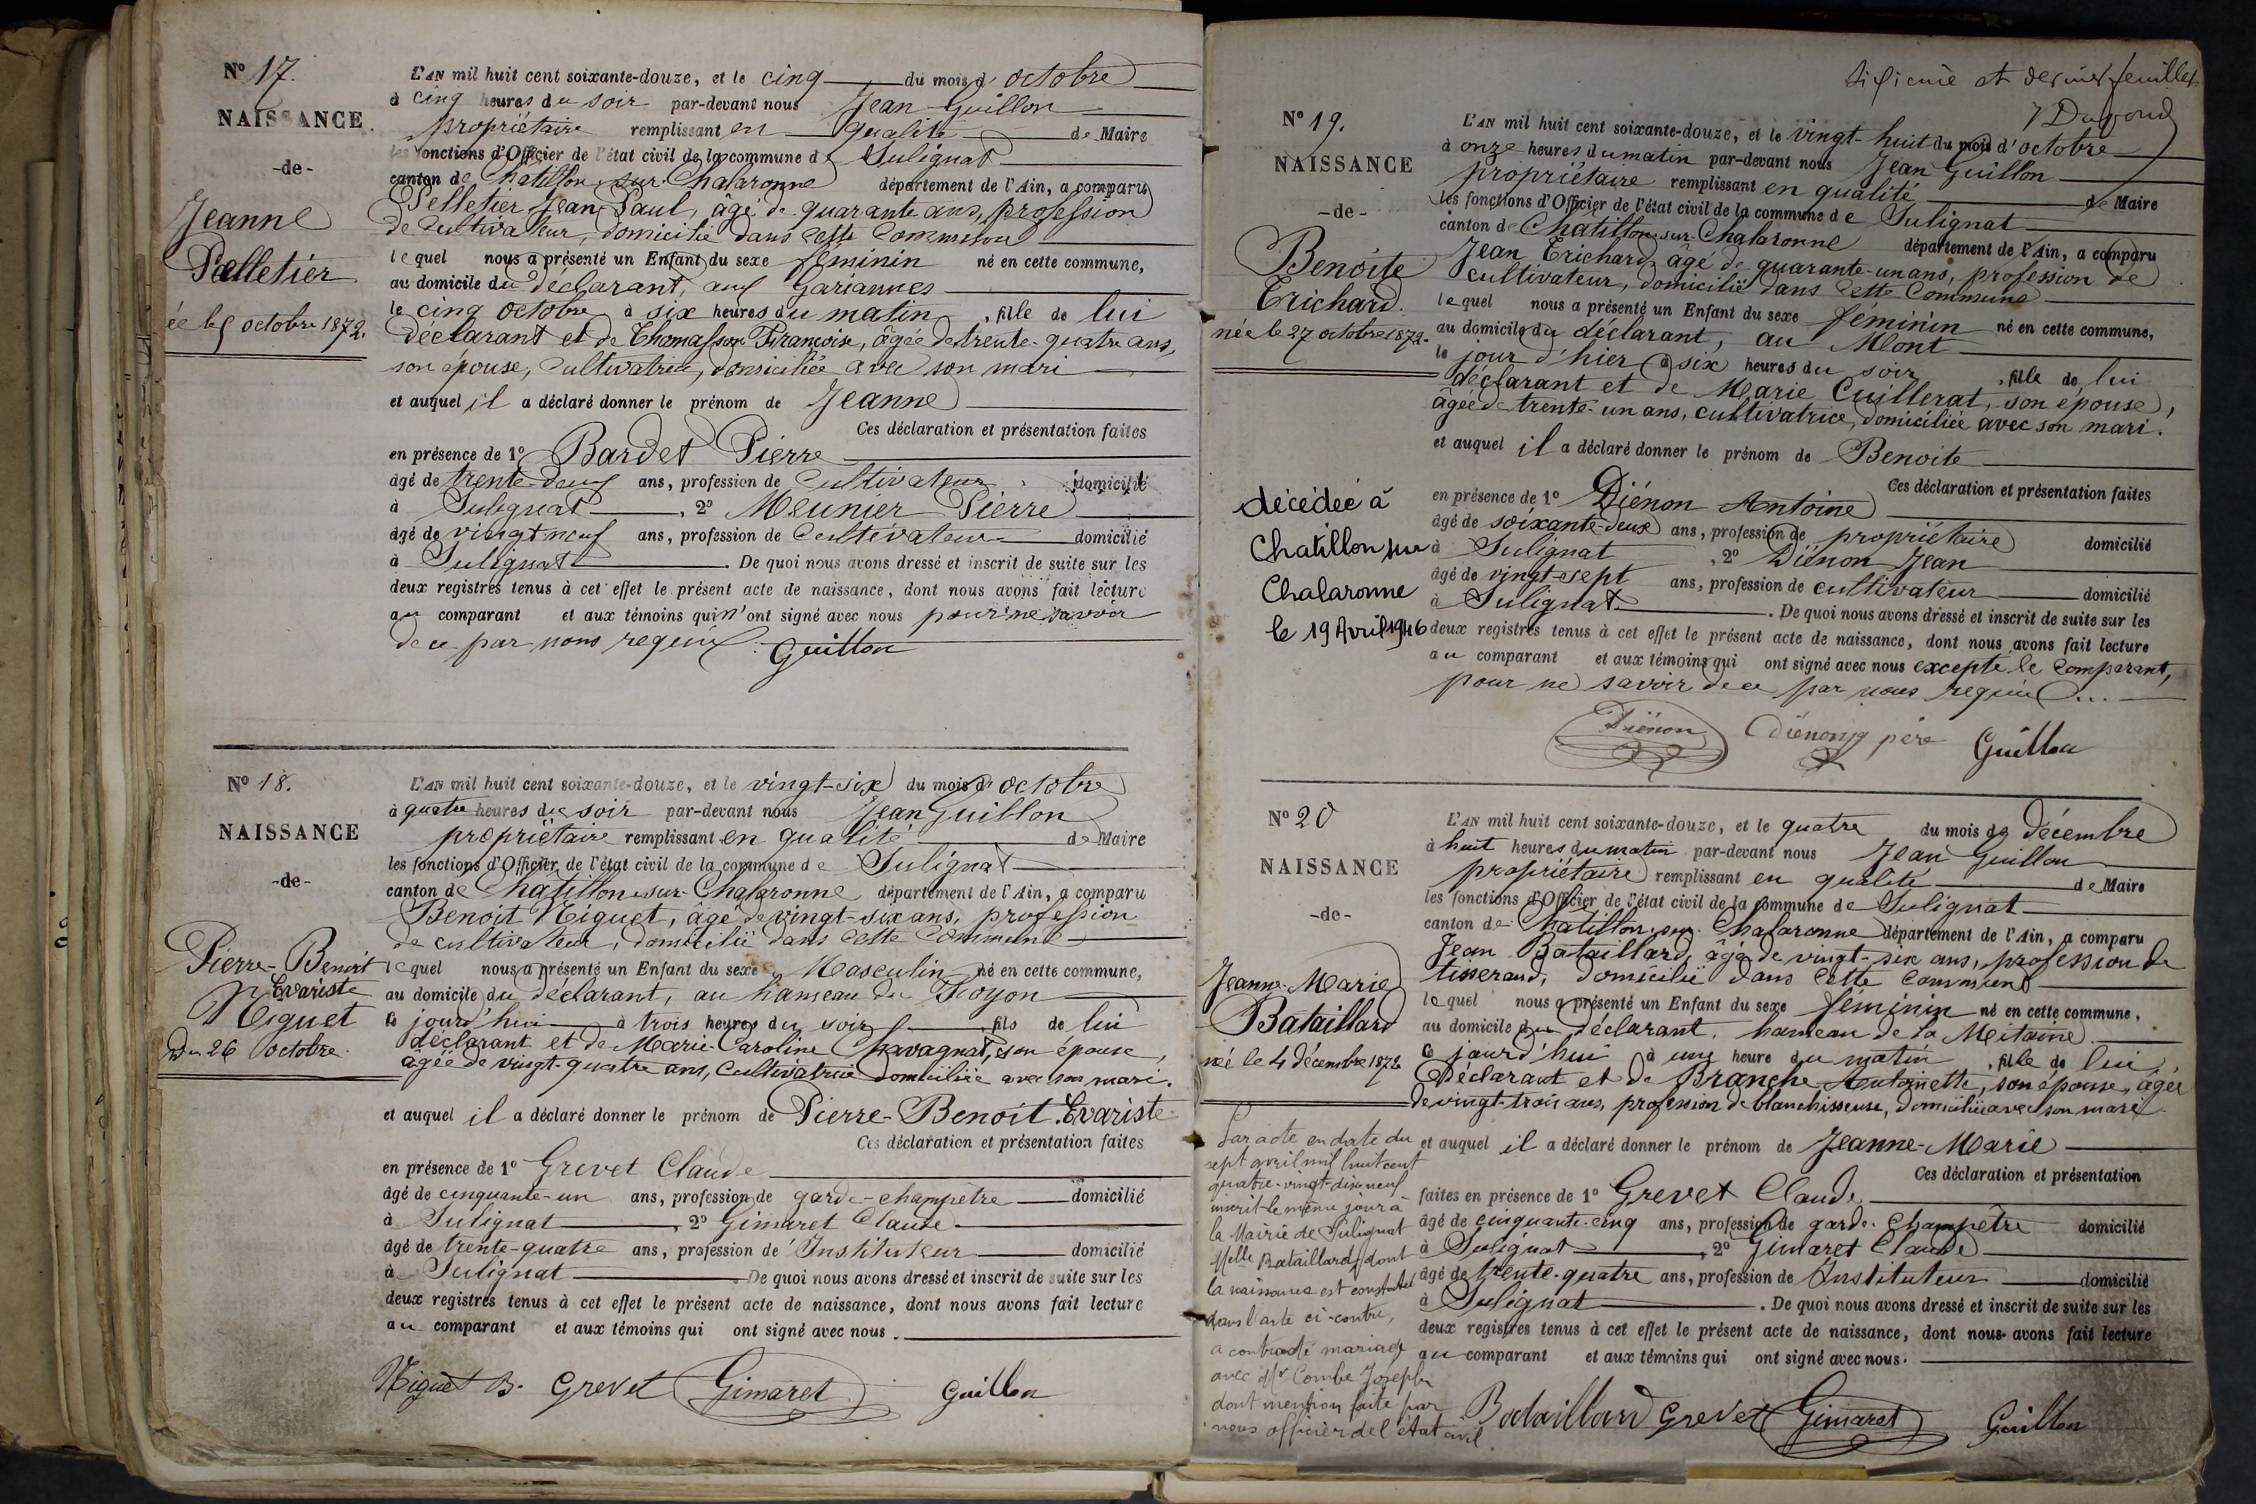 N° 17.
NAISSANCE
-de-
Jeanne
Pelletier
ée le 5 octobre 1872.
L'AN mil huit cent soixante-douze, et le cinq du mois d'octobre
à cinq heures du soir par-devant nous Jean Guillon
propriétaire remplissant en qualité de Maire
les fonctions d'Officier de l'état civil de la commune de Sulignat
canton de Chatillon-sur-Chalaronne département de l'Ain, a comparu
Pelletier Jean Paul, âgé de quarante ans, profession
de cultivateur, domicilié dans cette commune
lequel nous a présenté un Enfant du sexe féminin né en cette commune,
au domicile du déclarant, aux Gariannes
le cinq octobre à six heures du matin, fille de lui
déclarant et de Thomasson Françoise, âgée de trente-quatre ans,
son épouse, cultivatrice, domiciliée avec son mari
et auquel il a déclaré donner le prénom de Jeanne
Ces déclaration et présentation faites
en présence de 1° Bardet Pierre
âgé de trente-deux ans, profession de cultivateur domicilié
à Sulignat, 2° Meunier Pierre
âgé de vingt neuf ans, profession de cultivateur domicilié
à Sulignat. De quoi nous avons dressé et inscrit de suite sur les
deux registres tenus à cet effet le présent acte de naissance, dont nous avons fait lecture
au comparant et aux témoins qui n'ont signé avec nous pour ne savoir
de ce par nous requis. Guillon
N° 18.
NAISSANCE
-de-
Pierre-Benoit
Evariste
Niguet
Du 26 octobre.
L'AN mil huit cent soixante-douze, et le vingt-six du mois d'octobre
à quatre heures du soir par-devant nous Jean Guillon
propriétaire remplissant en qualité de Maire
les fonctions d'Officier de l'état civil de la commune de Sulignat
canton de Chatillon-sur-Chalaronne département de l'Ain, a comparu
Benoit Niguet, âgé de vingt-six ans, profession
de cultivateur, domicilié dans cette commune
lequel nous a présenté un Enfant du sexe Masculin né en cette commune,
au domicile du déclarant, au hameau du
le jourd'hui à trois heures du soir fils de lui
déclarant et de Marie-Caroline Chavagnat, son épouse,
âgée de vingt-quatre ans, cultivatrice domiciliée avec son mari.
et auquel il a déclaré donner le prénom de Pierre-Benoit Evariste
Ces déclaration et présentation faites
en présence de 1° Grevet Claude
âgé de cinquante-un ans, profession de garde-champêtre domicilié
à Sulignat, 2° Gimaret Claude
âgé de trente-quatre ans, profession de Instituteur domicilié
à Sulignat. De quoi nous avons dressé et inscrit de suite sur les
deux registres tenus à cet effet le présent acte de naissance, dont nous avons fait lecture
au comparant et aux témoins qui ont signé avec nous.
Niguet B. Grevet Gimaret Guillon
et dernier feuillet
N° 19.
NAISSANCE
-de-
Benoite
Trichard.
née le 27 octobre 1872.
décédée à
Chatillon sur
Chalaronne
le 19 Avril 1946
L'AN mil huit cent soixante-douze, et le vingt-huit du mois d'octobre
à onze heures du matin par-devant nous Jean Guillon
propriétaire remplissant en qualité de Maire
les fonctions d'Officier de l'état civil de la commune de Sulignat
canton de Chatillon-sur-Chalaronne département de l'Ain, a comparu
Jean Trichard, âgé de quarante-un ans, profession de
cultivateur, domicilié dans cette commune
lequel nous a présenté un Enfant du sexe féminin né en cette commune,
au domicile du déclarant, au Mont
le jour d'hier à six heures du soir, fille de lui
déclarant et de Marie Cuillerat, son épouse,
âgée de trente-un ans, cultivatrice, domiciliée avec son mari.
et auquel il a déclaré donner le prénom de Benoite
Ces déclaration et présentation faites
en présence de 1° Diénon Antoine
âgé de soixante-deux ans, profession de propriétaire domicilié
à Sulignat, 2° Diénon Jean
âgé de vingt-sept ans, profession de cultivateur domicilié
à Sulignat. De quoi nous avons dressé et inscrit de suite sur les
deux registres tenus à cet effet le présent acte de naissance, dont nous avons fait lecture
au comparant et aux témoins qui ont signé avec nous excepté le comparant,
pour ne savoir de ce par nous requis...
Diénon Diénon père Guillon
N° 20
NAISSANCE
-de-
Jeanne-Marie
Bataillard
né le 4 décembre 1872
Par acte en date du
sept avril mil huit cent
quatre-vingt-dix neuf
inscrit le même jour à
la Mairie de Sulignat
Melle Bataillard, dont
la naissance est constatée
dans l'acte ci-contre,
a contracté mariage
avec Mr Combe Joseph
dont mention faite par
nous officier de l'état civil.
L'AN mil huit cent soixante-douze, et le quatre du mois de décembre
à huit heures du matin par-devant nous Jean Guillon
propriétaire remplissant en qualité de Maire
les fonctions d'Officier de l'état civil de la commune de Sulignat
canton de Chatillon-sur-Chalaronne département de l'Ain, a comparu
Jean Bataillard, âgé de vingt-six ans, profession de
tisserand, domicilié dans cette commune
lequel nous a présenté un Enfant du sexe féminin né en cette commune,
au domicile du déclarant, hameau de la Mitaine
le jourd'hui à une heure du matin, fille de lui
Déclarant et de Branche Antoinette, son épouse, âgée
de vingt-trois ans, profession de blanchisseuse, domiciliée avec son mari.
et auquel il a déclaré donner le prénom de Jeanne-Marie
Ces déclaration et présentation
faites en présence de 1° Grevet Claude
âgé de cinquante-cinq ans, profession de garde-champêtre domicilié
à Sulignat, 2° Gimaret Claude
âgé de trente-quatre ans, profession de Instituteur domicilié
à Sulignat. De quoi nous avons dressé et inscrit de suite sur les
deux registres tenus à cet effet le présent acte de naissance, dont nous avons fait lecture
au comparant et aux témoins qui ont signé avec nous.
Bataillard Grevet Gimaret Guillon